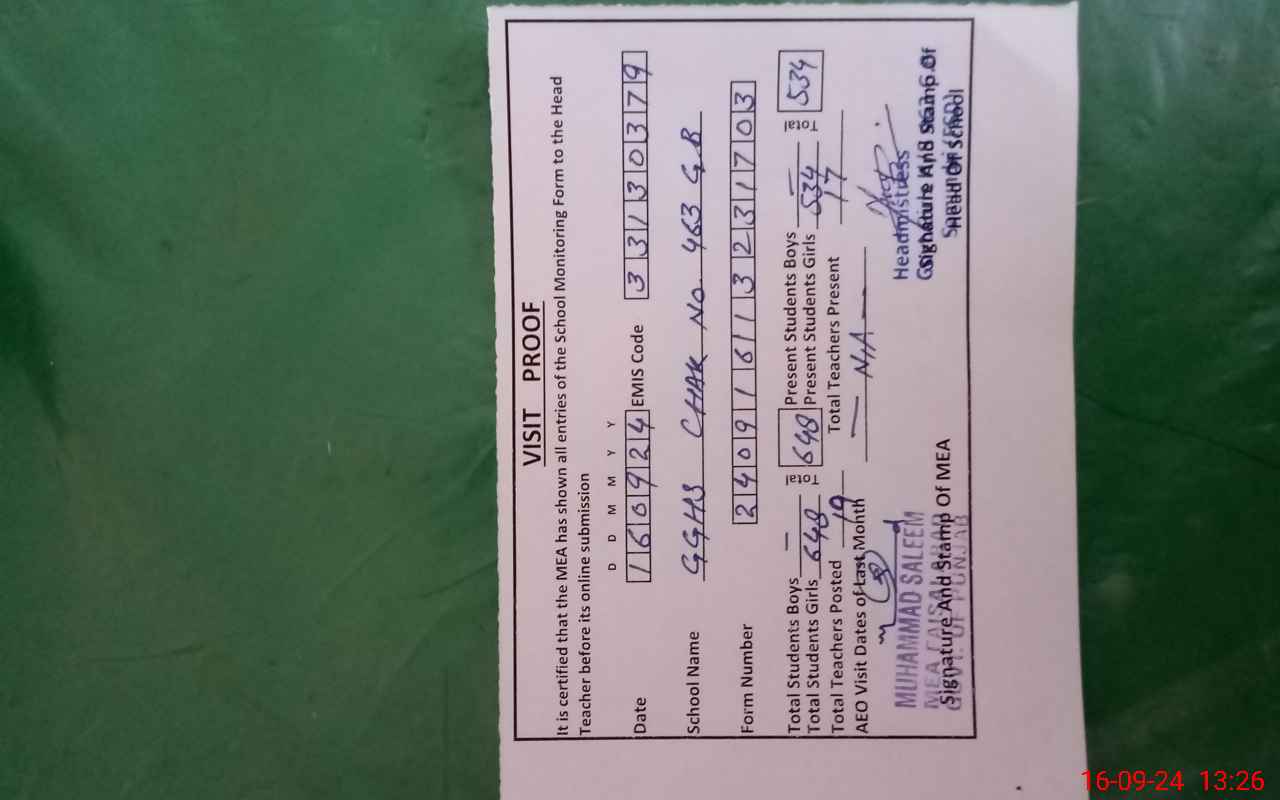 VISIT PROOF
It is certified that the MEA has shown all entries of the School Monitoring Form to the Head
Teacher before its online submission
D D M M Y Y
Date 160924 EMIS Code 33130379
School Name GGHS CHAK No. 463 GB
Form Number 240916113231703
Total Students Boys — Present Students Boys —
Total Students Girls 648 Total 648 Present Students Girls 534 Total 534
Total Teachers Posted 19 Total Teachers Present 17
AEO Visit Dates of Last Month — N/A —
MUHAMMAD SALEEM
MEA FAISALABAD
GOVT. OF PUNJAB
Signature And Stamp Of MEA
Headmistress
Signature And Stamp Of
Head Of School
16-09-24 13:26